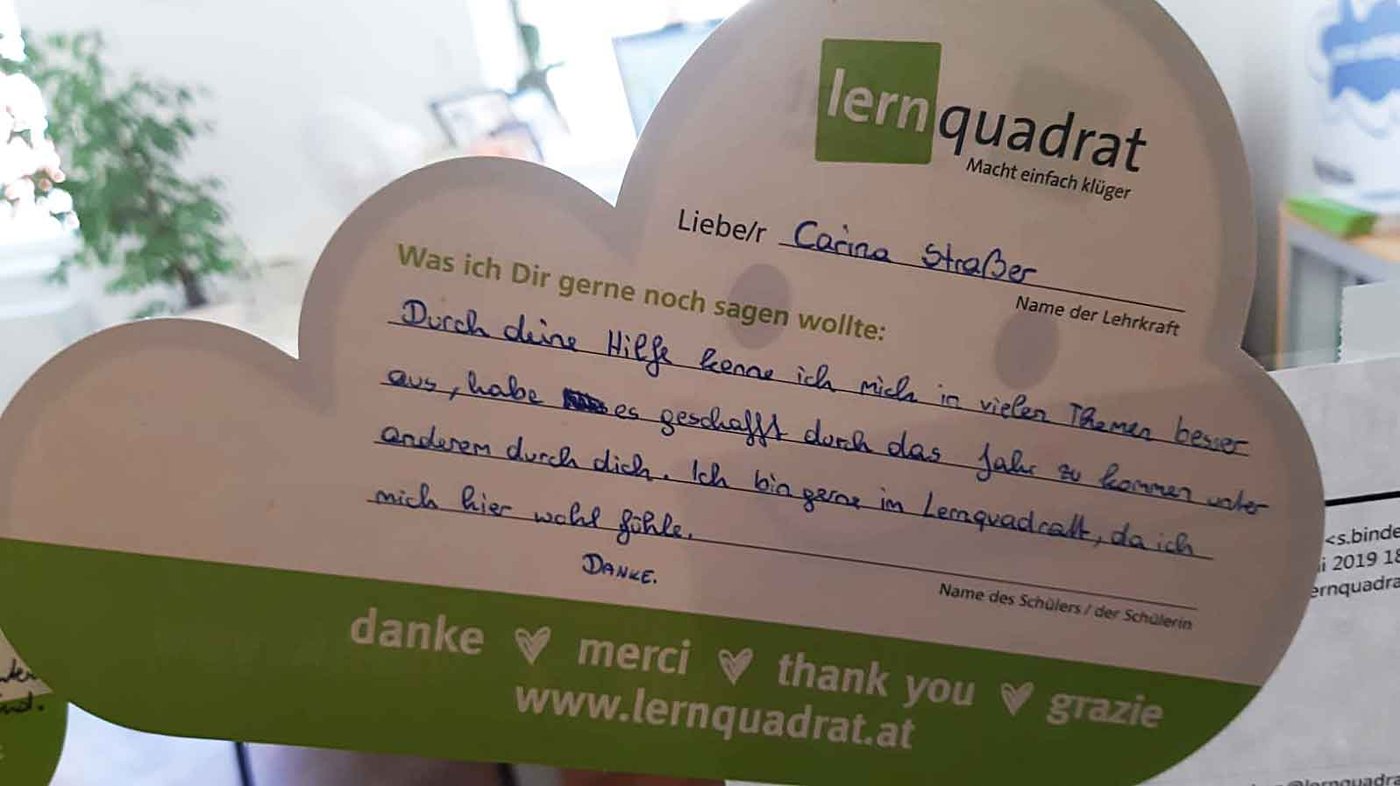 lernquadrat
Macht einfach klüger
Liebe/r Carina Straßer
Name der Lehrkraft
Was ich Dir gerne noch sagen wollte:
Durch deine Hilfe kenne ich mich in vielen Themen besser
aus, habe es geschafft durch das Jahr zu kommen unter
anderem durch dich. Ich bin gerne im Lernquadratt, da ich
mich hier wohl fühle.
DANKE.
Name des Schülers / der Schülerin
danke merci thank you grazie
www.lernquadrat.at
<s.binde
2019 18
ernquadra
@lernquadra